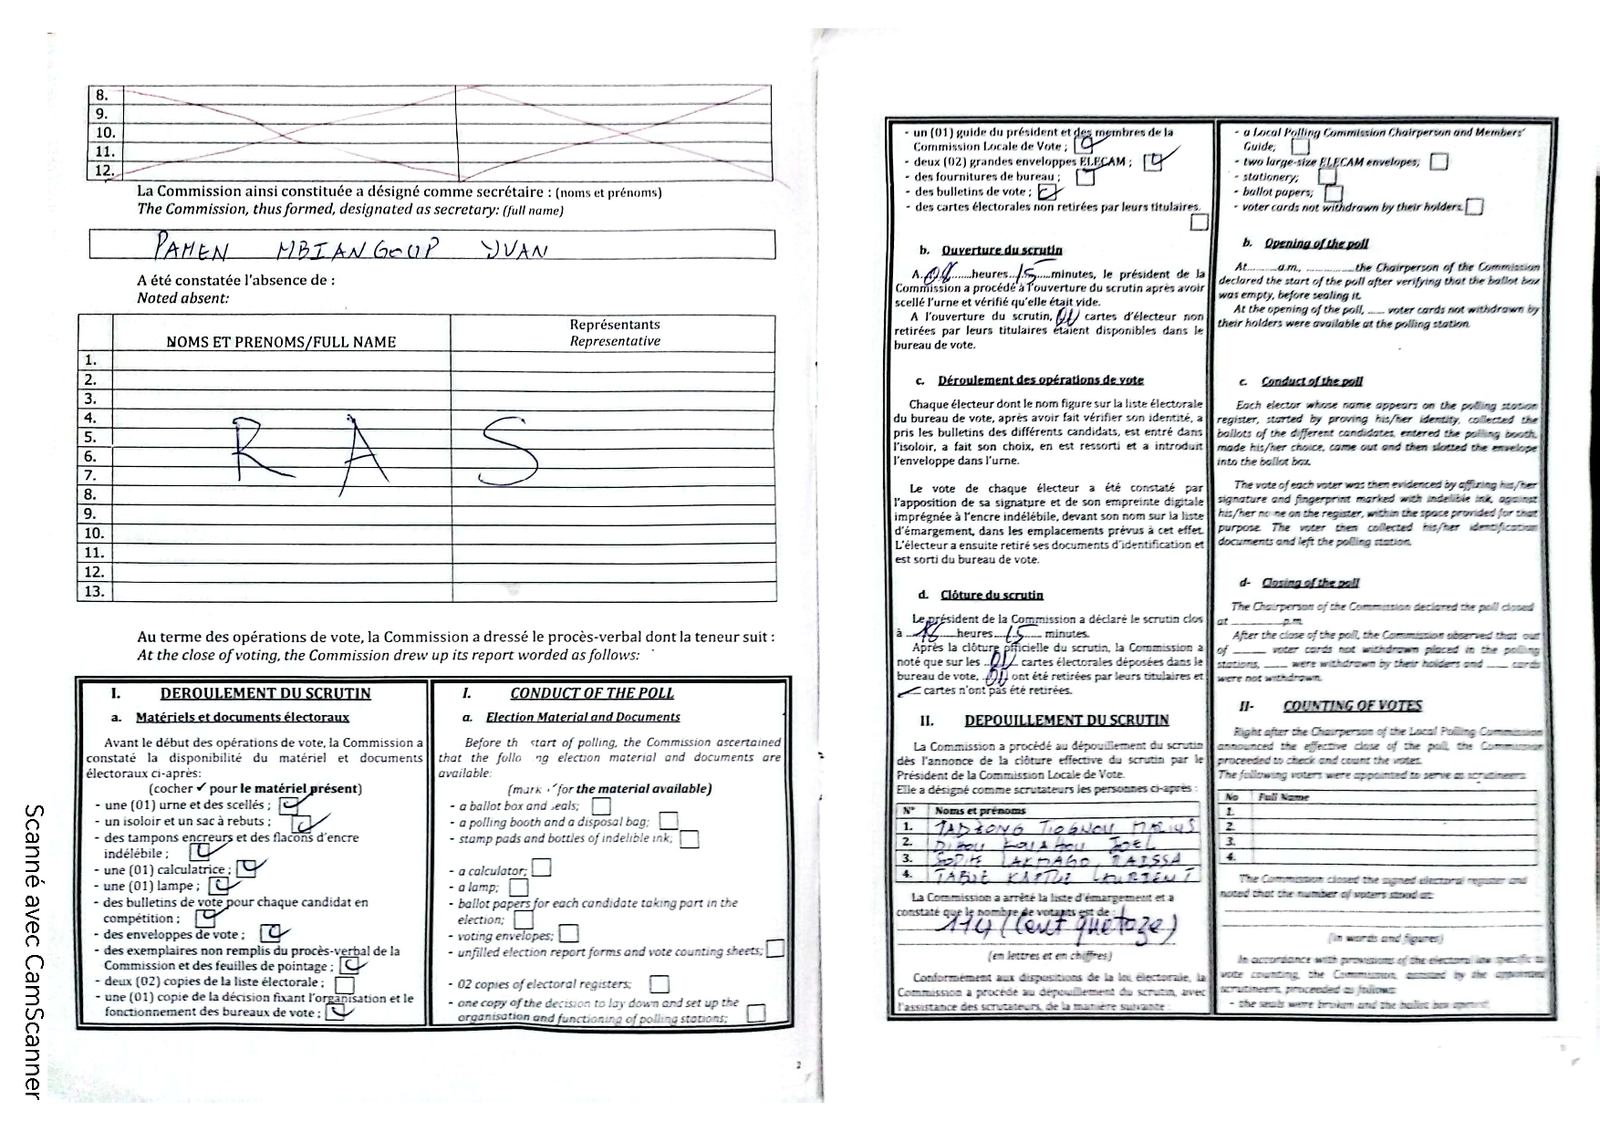 8.
9.
10.
11.
12.
La Commission ainsi constituée a désigné comme secrétaire : (noms et prénoms)
The Commission, thus formed, designated as secretary: (full name)
PAMEN MBIANGOUP YVAN
A été constatée l'absence de :
Noted absent:
NOMS ET PRENOMS/FULL NAME
Représentants
Representative
1.
2.
3.
4.
5.
6.
7.
8.
9.
10.
11.
12.
13.
R A S
Au terme des opérations de vote, la Commission a dressé le procès-verbal dont la teneur suit :
At the close of voting, the Commission drew up its report worded as follows:
I. DEROULEMENT DU SCRUTIN
a. Matériels et documents électoraux
Avant le début des opérations de vote, la Commission a
constaté la disponibilité du matériel et documents
électoraux ci-après:
(cocher ✓ pour le matériel présent)
- une (01) urne et des scellés ;
- un isoloir et un sac à rebuts ;
- des tampons encreurs et des flacons d'encre
indélébile ;
- une (01) calculatrice ;
- une (01) lampe ;
- des bulletins de vote pour chaque candidat en
compétition ;
- des enveloppes de vote ;
- des exemplaires non remplis du procès-verbal de la
Commission et des feuilles de pointage ;
- deux (02) copies de la liste électorale ;
- une (01) copie de la décision fixant l'organisation et le
fonctionnement des bureaux de vote ;
I. CONDUCT OF THE POLL
a. Election Material and Documents
Before th start of polling, the Commission ascertained
that the follo ng election material and documents are
available:
(mark ✓ for the material available)
- a ballot box and seals;
- a polling booth and a disposal bag;
- stamp pads and bottles of indelible ink;
- a calculator;
- a lamp;
- ballot papers for each candidate taking part in the
election;
- voting envelopes;
- unfilled election report forms and vote counting sheets;
- 02 copies of electoral registers;
- one copy of the decision to lay down and set up the
organisation and functioning of polling stations;
2
- un (01) guide du président et des membres de la
Commission Locale de Vote ;
- deux (02) grandes enveloppes ELECAM ;
- des fournitures de bureau ;
- des bulletins de vote ;
- des cartes électorales non retirées par leurs titulaires.
b. Ouverture du scrutin
A 08 heures 15 minutes, le président de la
Commission a procédé à l'ouverture du scrutin après avoir
scellé l'urne et vérifié qu'elle était vide.
A l'ouverture du scrutin, cartes d'électeur non
retirées par leurs titulaires étaient disponibles dans le
bureau de vote.
c. Déroulement des opérations de vote
Chaque électeur dont le nom figure sur la liste électorale
du bureau de vote, après avoir fait vérifier son identité, a
pris les bulletins des différents candidats, est entré dans
l'isoloir, a fait son choix, en est ressorti et a introduit
l'enveloppe dans l'urne.
Le vote de chaque électeur a été constaté par
l'apposition de sa signature et de son empreinte digitale
imprégnée à l'encre indélébile, devant son nom sur la liste
d'émargement, dans les emplacements prévus à cet effet.
L'électeur a ensuite retiré ses documents d'identification et
est sorti du bureau de vote.
d. Clôture du scrutin
Le président de la Commission a déclaré le scrutin clos
à 18 heures 15 minutes.
Après la clôture officielle du scrutin, la Commission a
noté que sur les cartes électorales déposées dans le
bureau de vote, ont été retirées par leurs titulaires et
cartes n'ont pas été retirées.
II. DEPOUILLEMENT DU SCRUTIN
La Commission a procédé au dépouillement du scrutin
dès l'annonce de la clôture effective du scrutin par le
Président de la Commission Locale de Vote.
Elle a désigné comme scrutateurs les personnes ci-après :
N° Noms et prénoms
1. TIOGNOU MARIUS
2. JOEL
3. RAISSA
4. LAURIENT
La Commission a arrêté la liste d'émargement et a
constaté que le nombre de votants est de :
114 (Cent quatoze)
(en lettres et en chiffres)
Conformément aux dispositions de la loi électorale, la
Commission a procédé au dépouillement du scrutin, avec
l'assistance des scrutateurs, de la manière suivante :
- a Local Polling Commission Chairperson and Members'
Guide;
- two large-size ELECAM envelopes;
- stationery;
- ballot papers;
- voter cards not withdrawn by their holders.
b. Opening of the poll
At ........a.m., ............ the Chairperson of the Commission
declared the start of the poll after verifying that the ballot box
was empty, before sealing it.
At the opening of the poll, ..... voter cards not withdrawn by
their holders were available at the polling station.
c. Conduct of the poll
Each elector whose name appears on the polling station
register, started by proving his/her identity, collected the
ballots of the different candidates, entered the polling booth,
made his/her choice, came out and then slotted the envelope
into the ballot box.
The vote of each voter was then evidenced by affixing his/her
signature and fingerprint marked with indelible ink, against
his/her name on the register, within the space provided for that
purpose. The voter then collected his/her identification
documents and left the polling station.
d- Closing of the poll
The Chairperson of the Commission declared the poll closed
at .......... p.m.
After the close of the poll, the Commission observed that out
of ______ voter cards not withdrawn placed in the polling
stations, ____ were withdrawn by their holders and ____ cards
were not withdrawn.
II- COUNTING OF VOTES
Right after the Chairperson of the Local Polling Commission
announced the effective close of the poll, the Commission
proceeded to check and count the votes.
The following voters were appointed to serve as scrutineers
No Full Name
1.
2.
3.
4.
The Commission closed the signed electoral register and
noted that the number of voters stood at:
(in words and figures)
In accordance with provisions of the electoral law specific to
vote counting, the Commission, assisted by the appointed
scrutineers, proceeded as follows:
- the seals were broken and the ballot box opened;
Scanné avec CamScanner